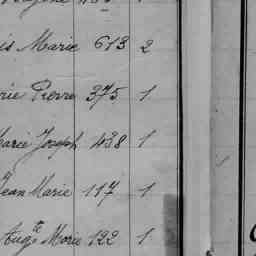 is Marie 613 2
rie Pierre 375 1
Joseph 438 1
Jean Marie 117 1
Augte Marie 122 1